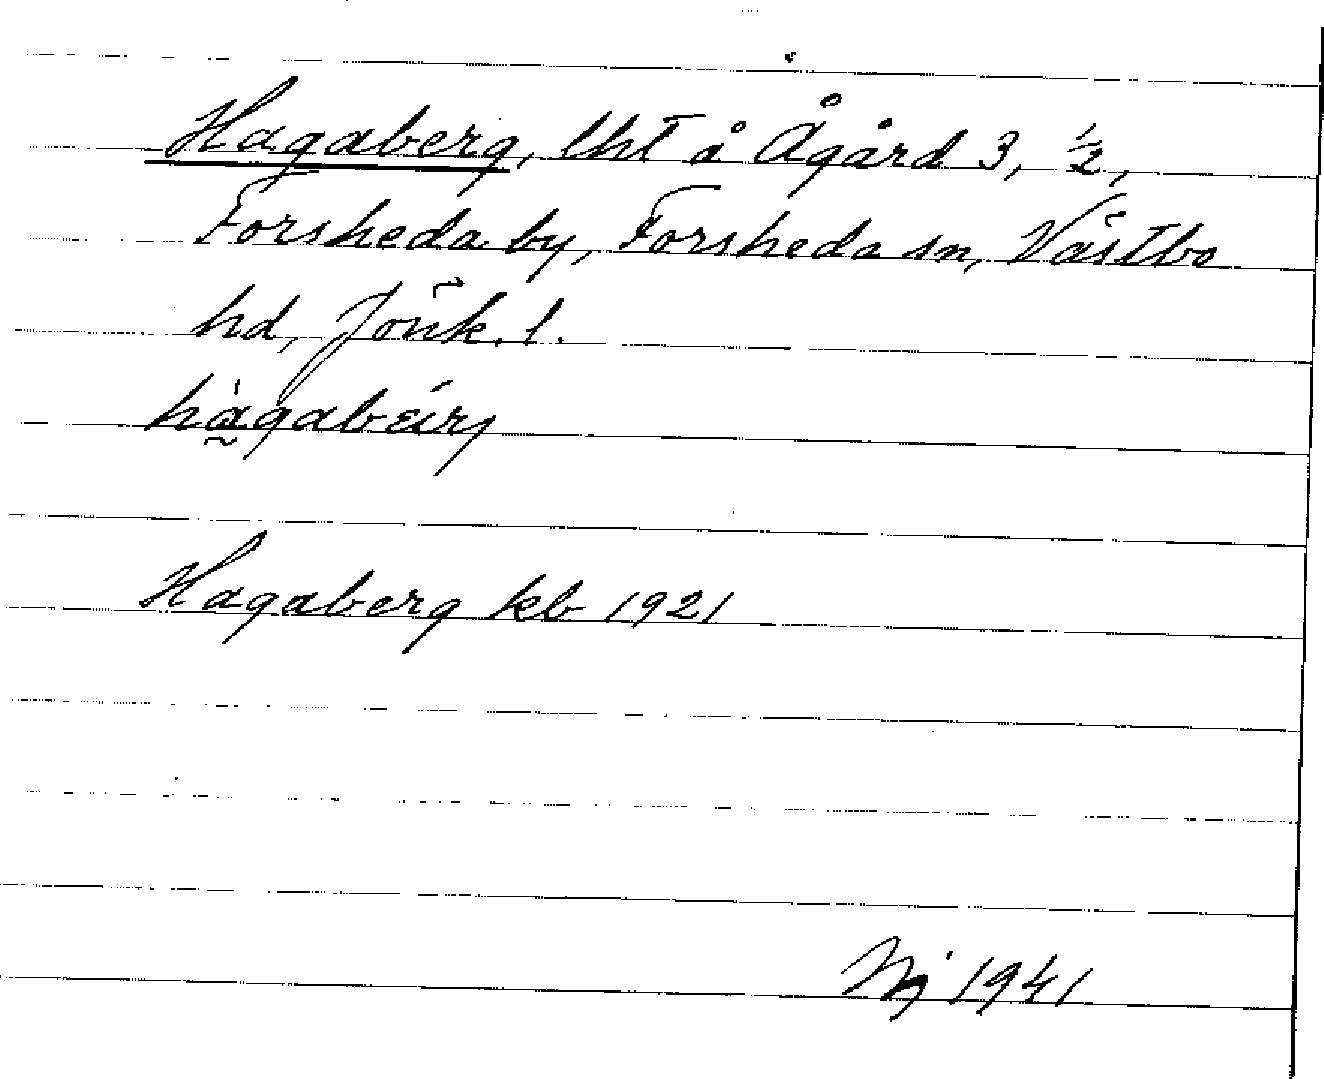 Hagaberg, lht å Ågård 3, 1/2,
Forsheda by, Forsheda sn, Västbo
hd, Jönk. l.
Hagaberg kb 1921
1941